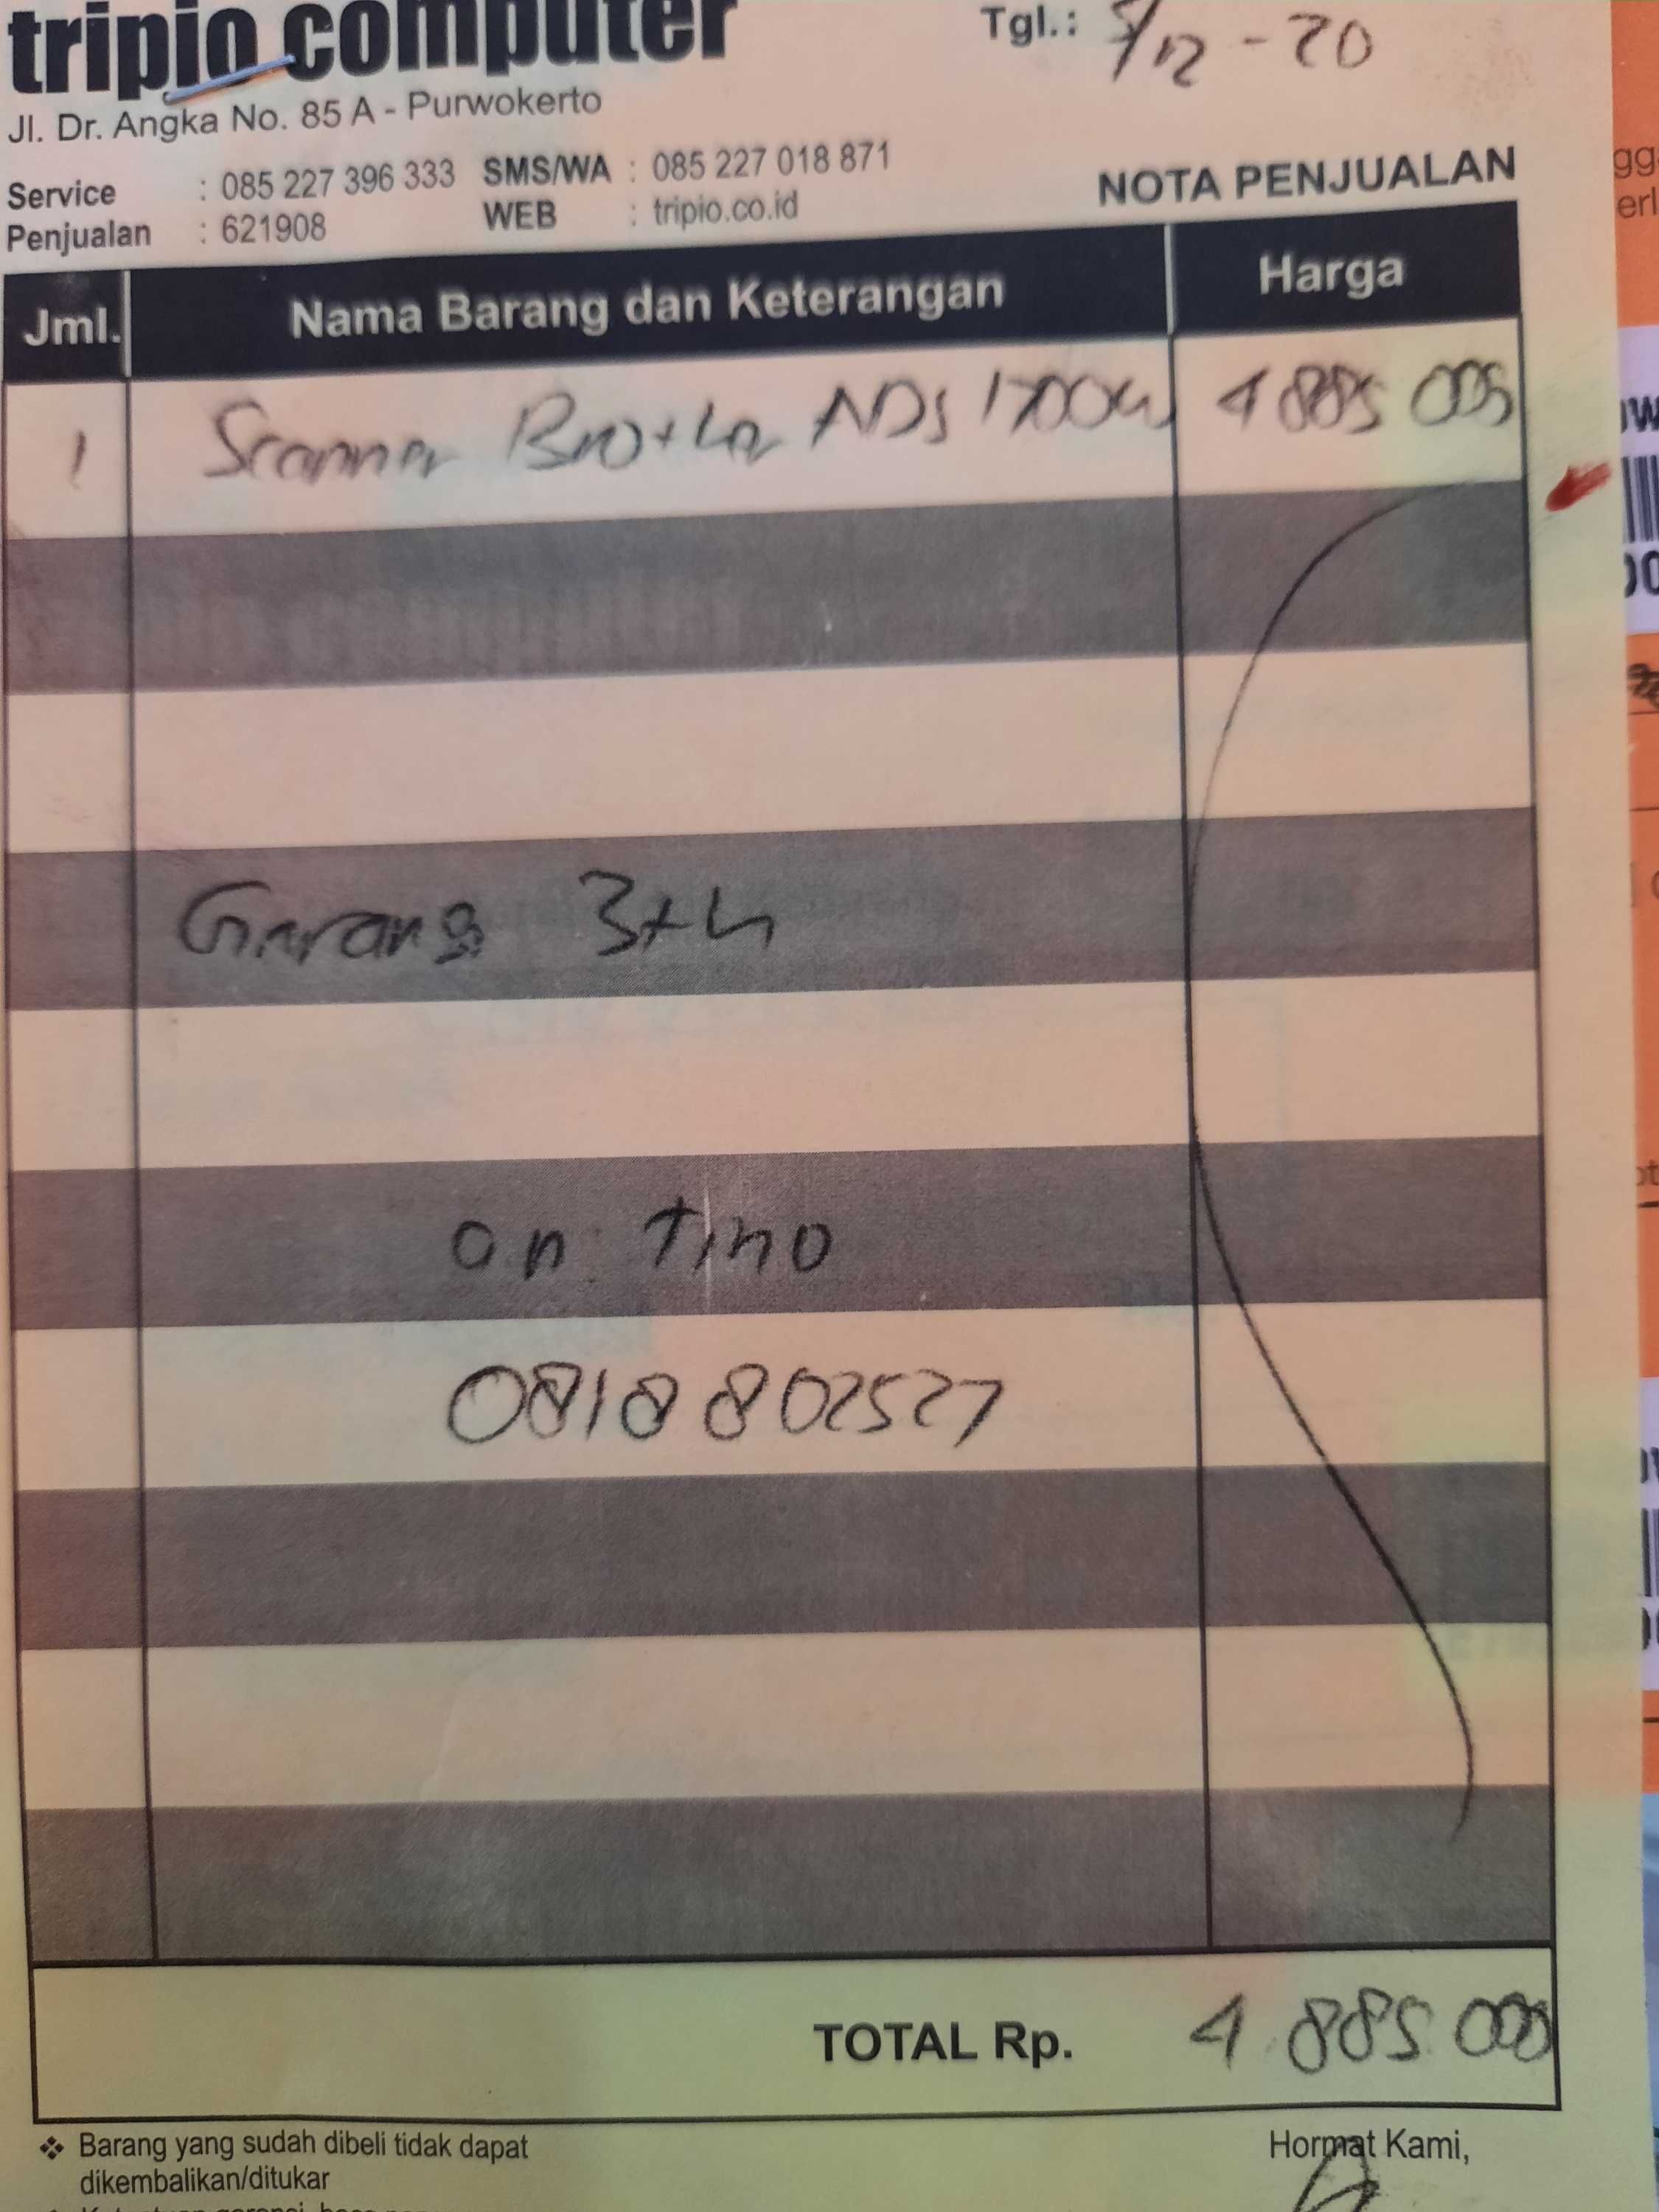 tripio computer
Tgl.: 5/12 - 20
Jl. Dr. Angka No. 85 A - Purwokerto
Service : 085 227 396 333 SMS/WA : 085 227 018 871
Penjualan : 621908 WEB : tripio.co.id
NOTA PENJUALAN
Jml. Nama Barang dan Keterangan Harga
1 Scanner Brother ADS 1700W 4 885 000
Garansi 3th
an Tino
0818 802527
TOTAL Rp. 4.885.000
❖ Barang yang sudah dibeli tidak dapat
dikembalikan/ditukar
Hormat Kami,